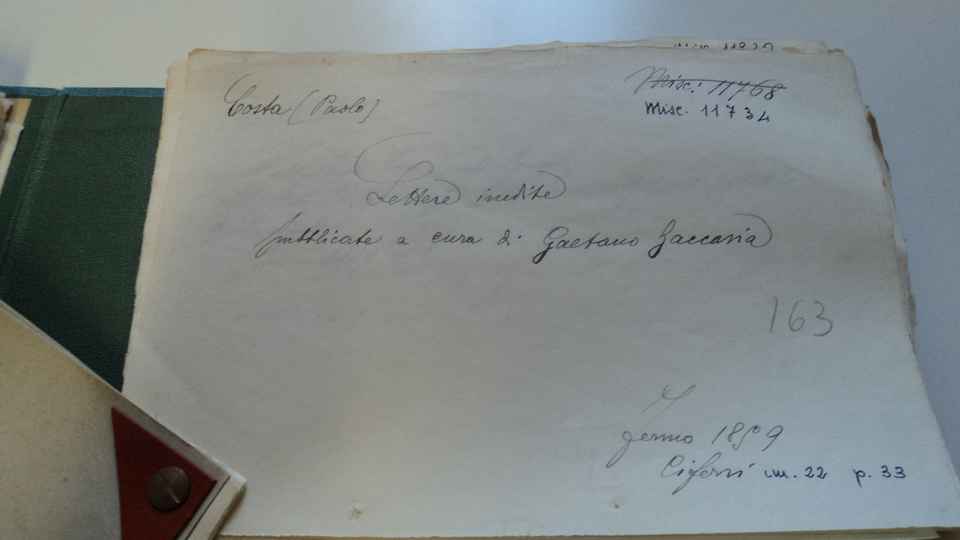 Costa (Paolo)
Misc. 11768
Misc. 11734
Lettere inedite
pubblicate a cura di Gaetano Zaccaria
163
Fermo 1859
Ciferri in. 22 p. 33